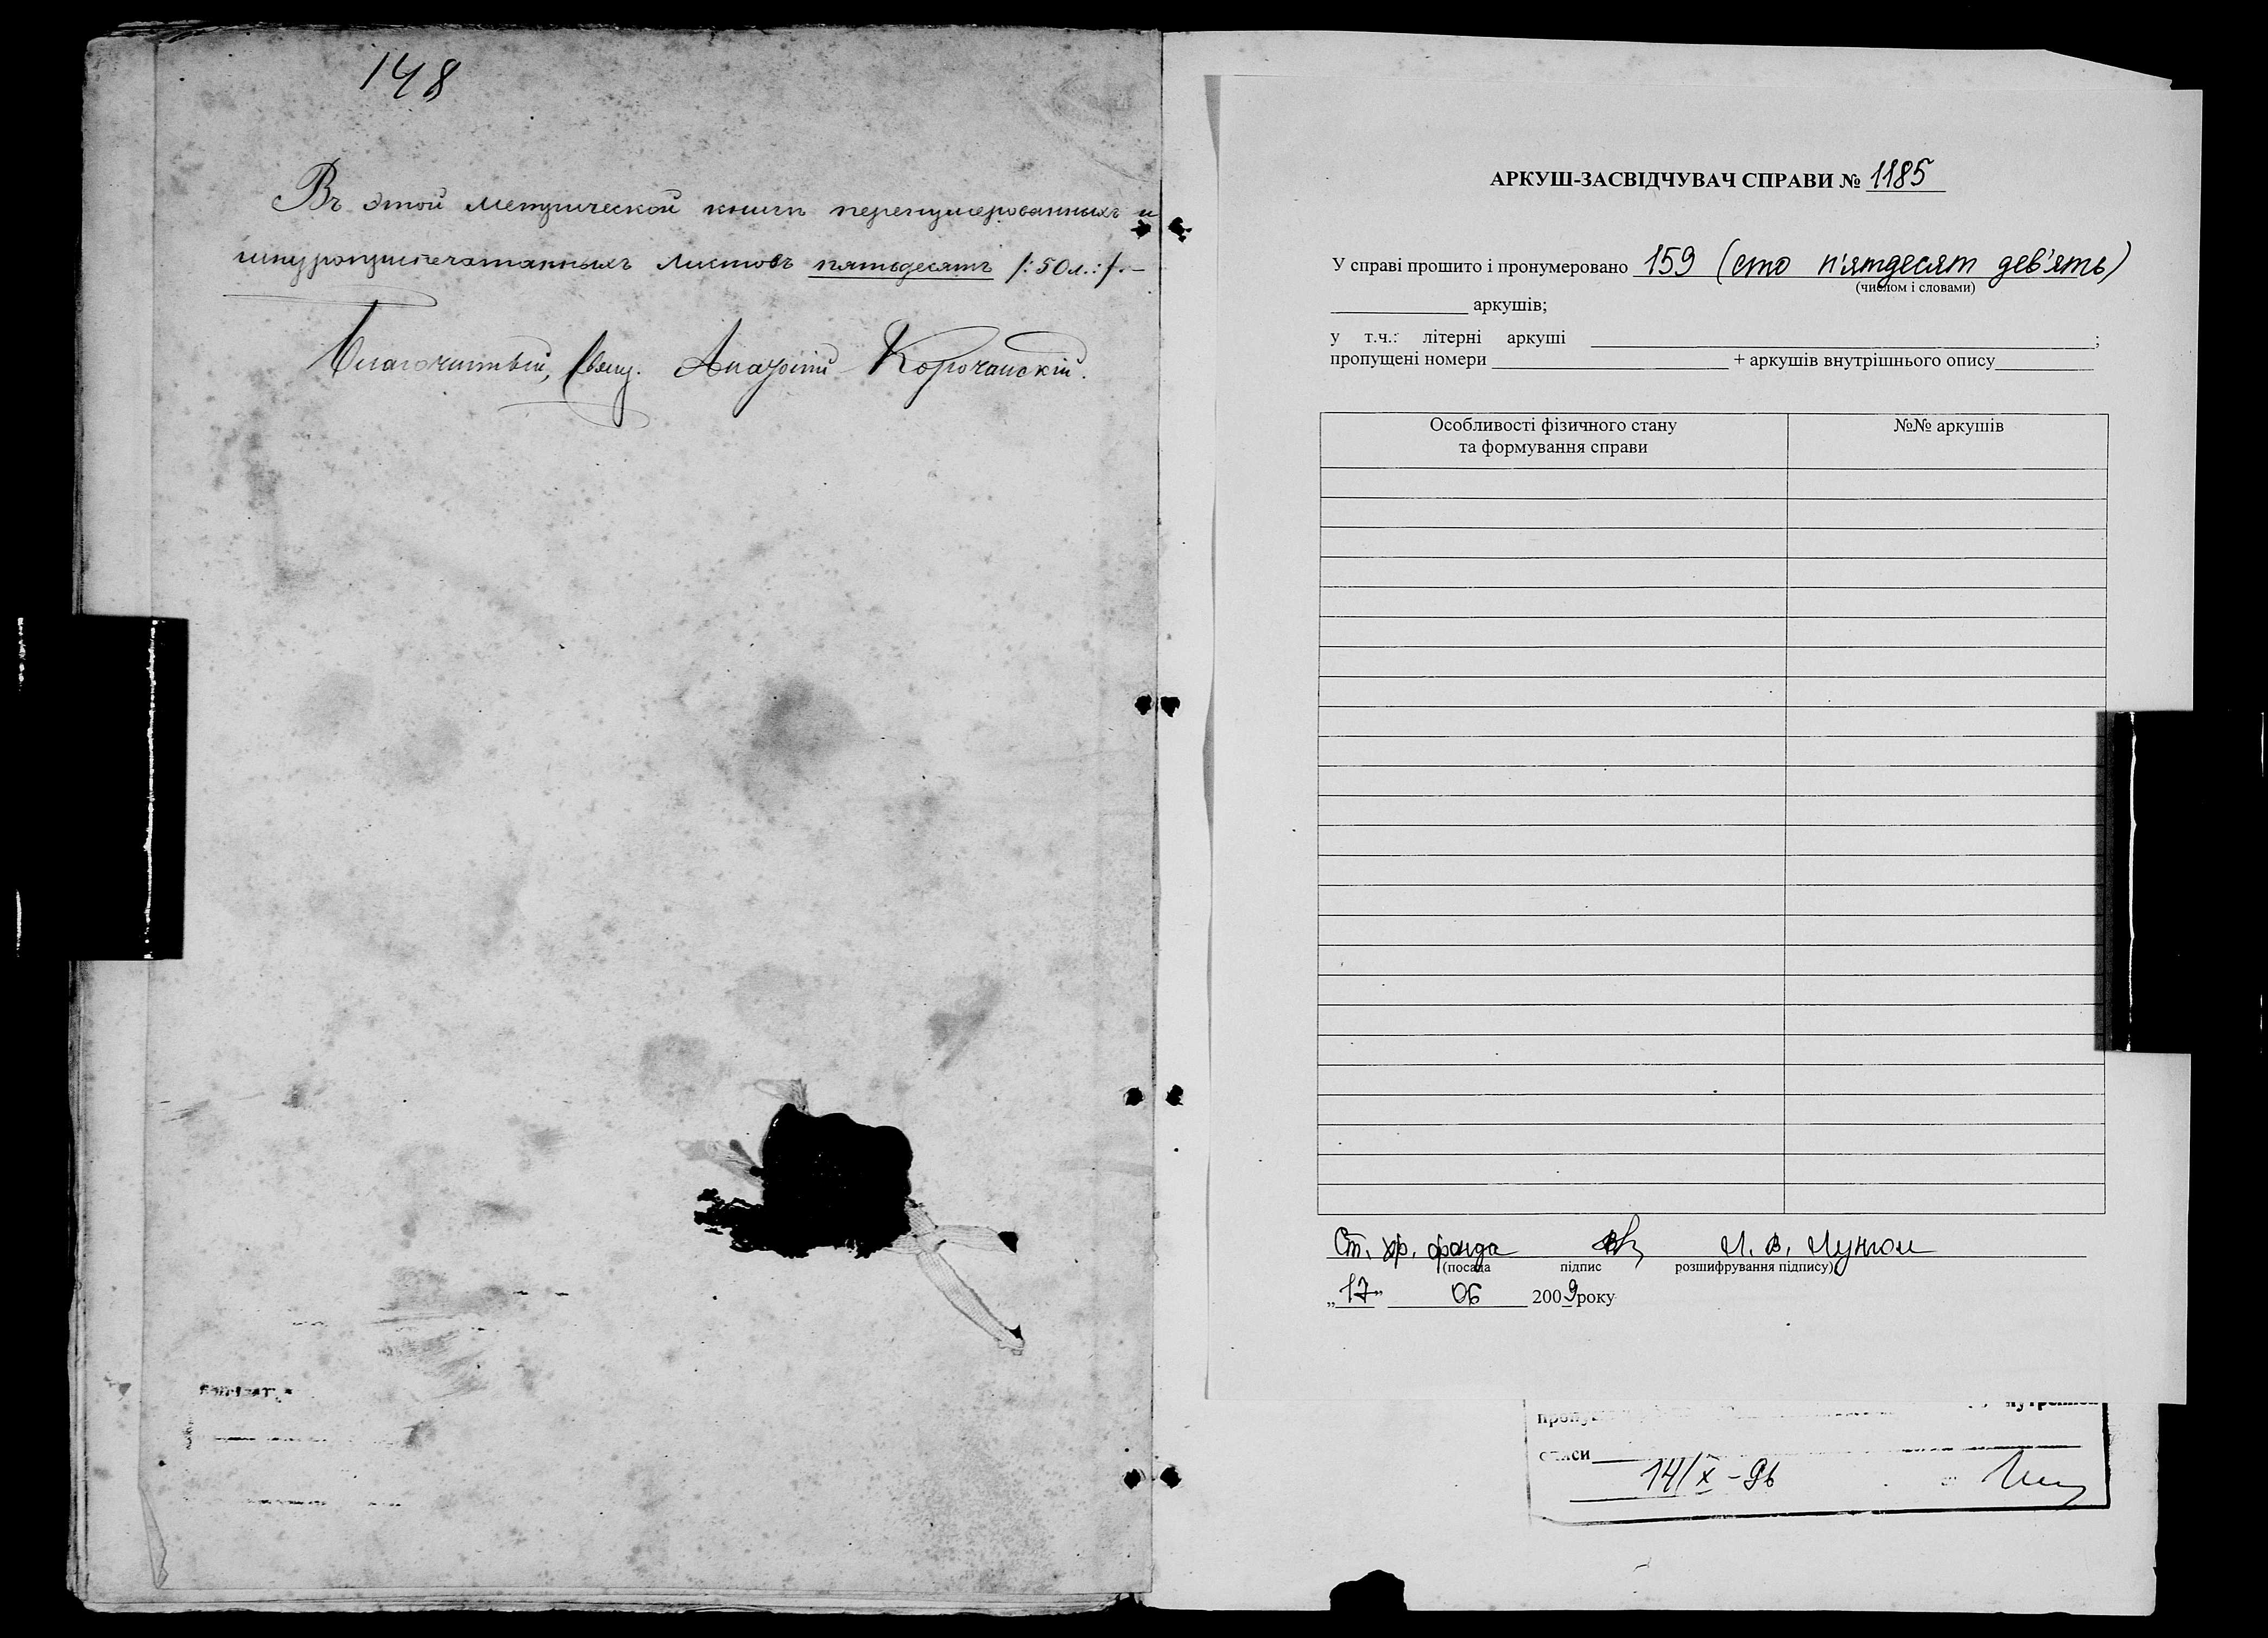 148
Въ этой метрической книгѣ перенумерованныхъ и
шнуроприпечатанныхъ листовъ пятьдесятъ /:50 л.:/.–
Благочинный, Свящ. Корочанскій.
АРКУШ-ЗАСВІДЧУВАЧ СПРАВИ № 1185
У справі прошито і пронумеровано 159 (сто п'ятдесят дев'ять)
(числом і словами)
аркушів;
у т.ч.: літерні аркуші ;
пропущені номери + аркушів внутрішнього опису
Особливості фізичного стану
та формування справи
№№ аркушів
Ст. хр. фонда Л. В.
(посада підпис розшифрування підпису)
„17” 06 2009 року
описи
14/X-96